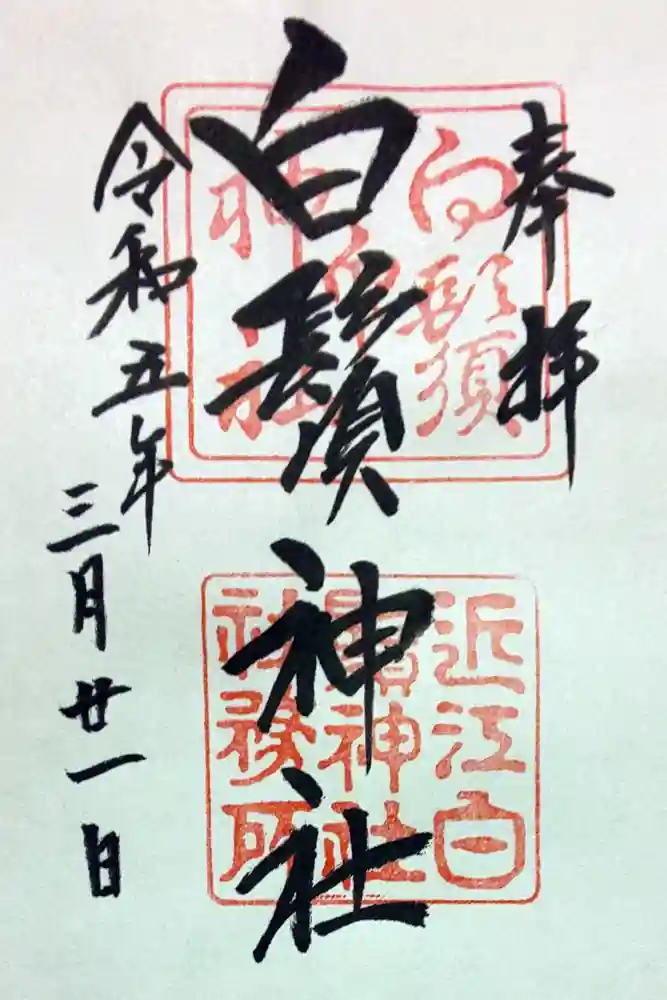 奉拝
白鬚神社
令和五年
三月廿一日
近江白
鬚神社
社務所